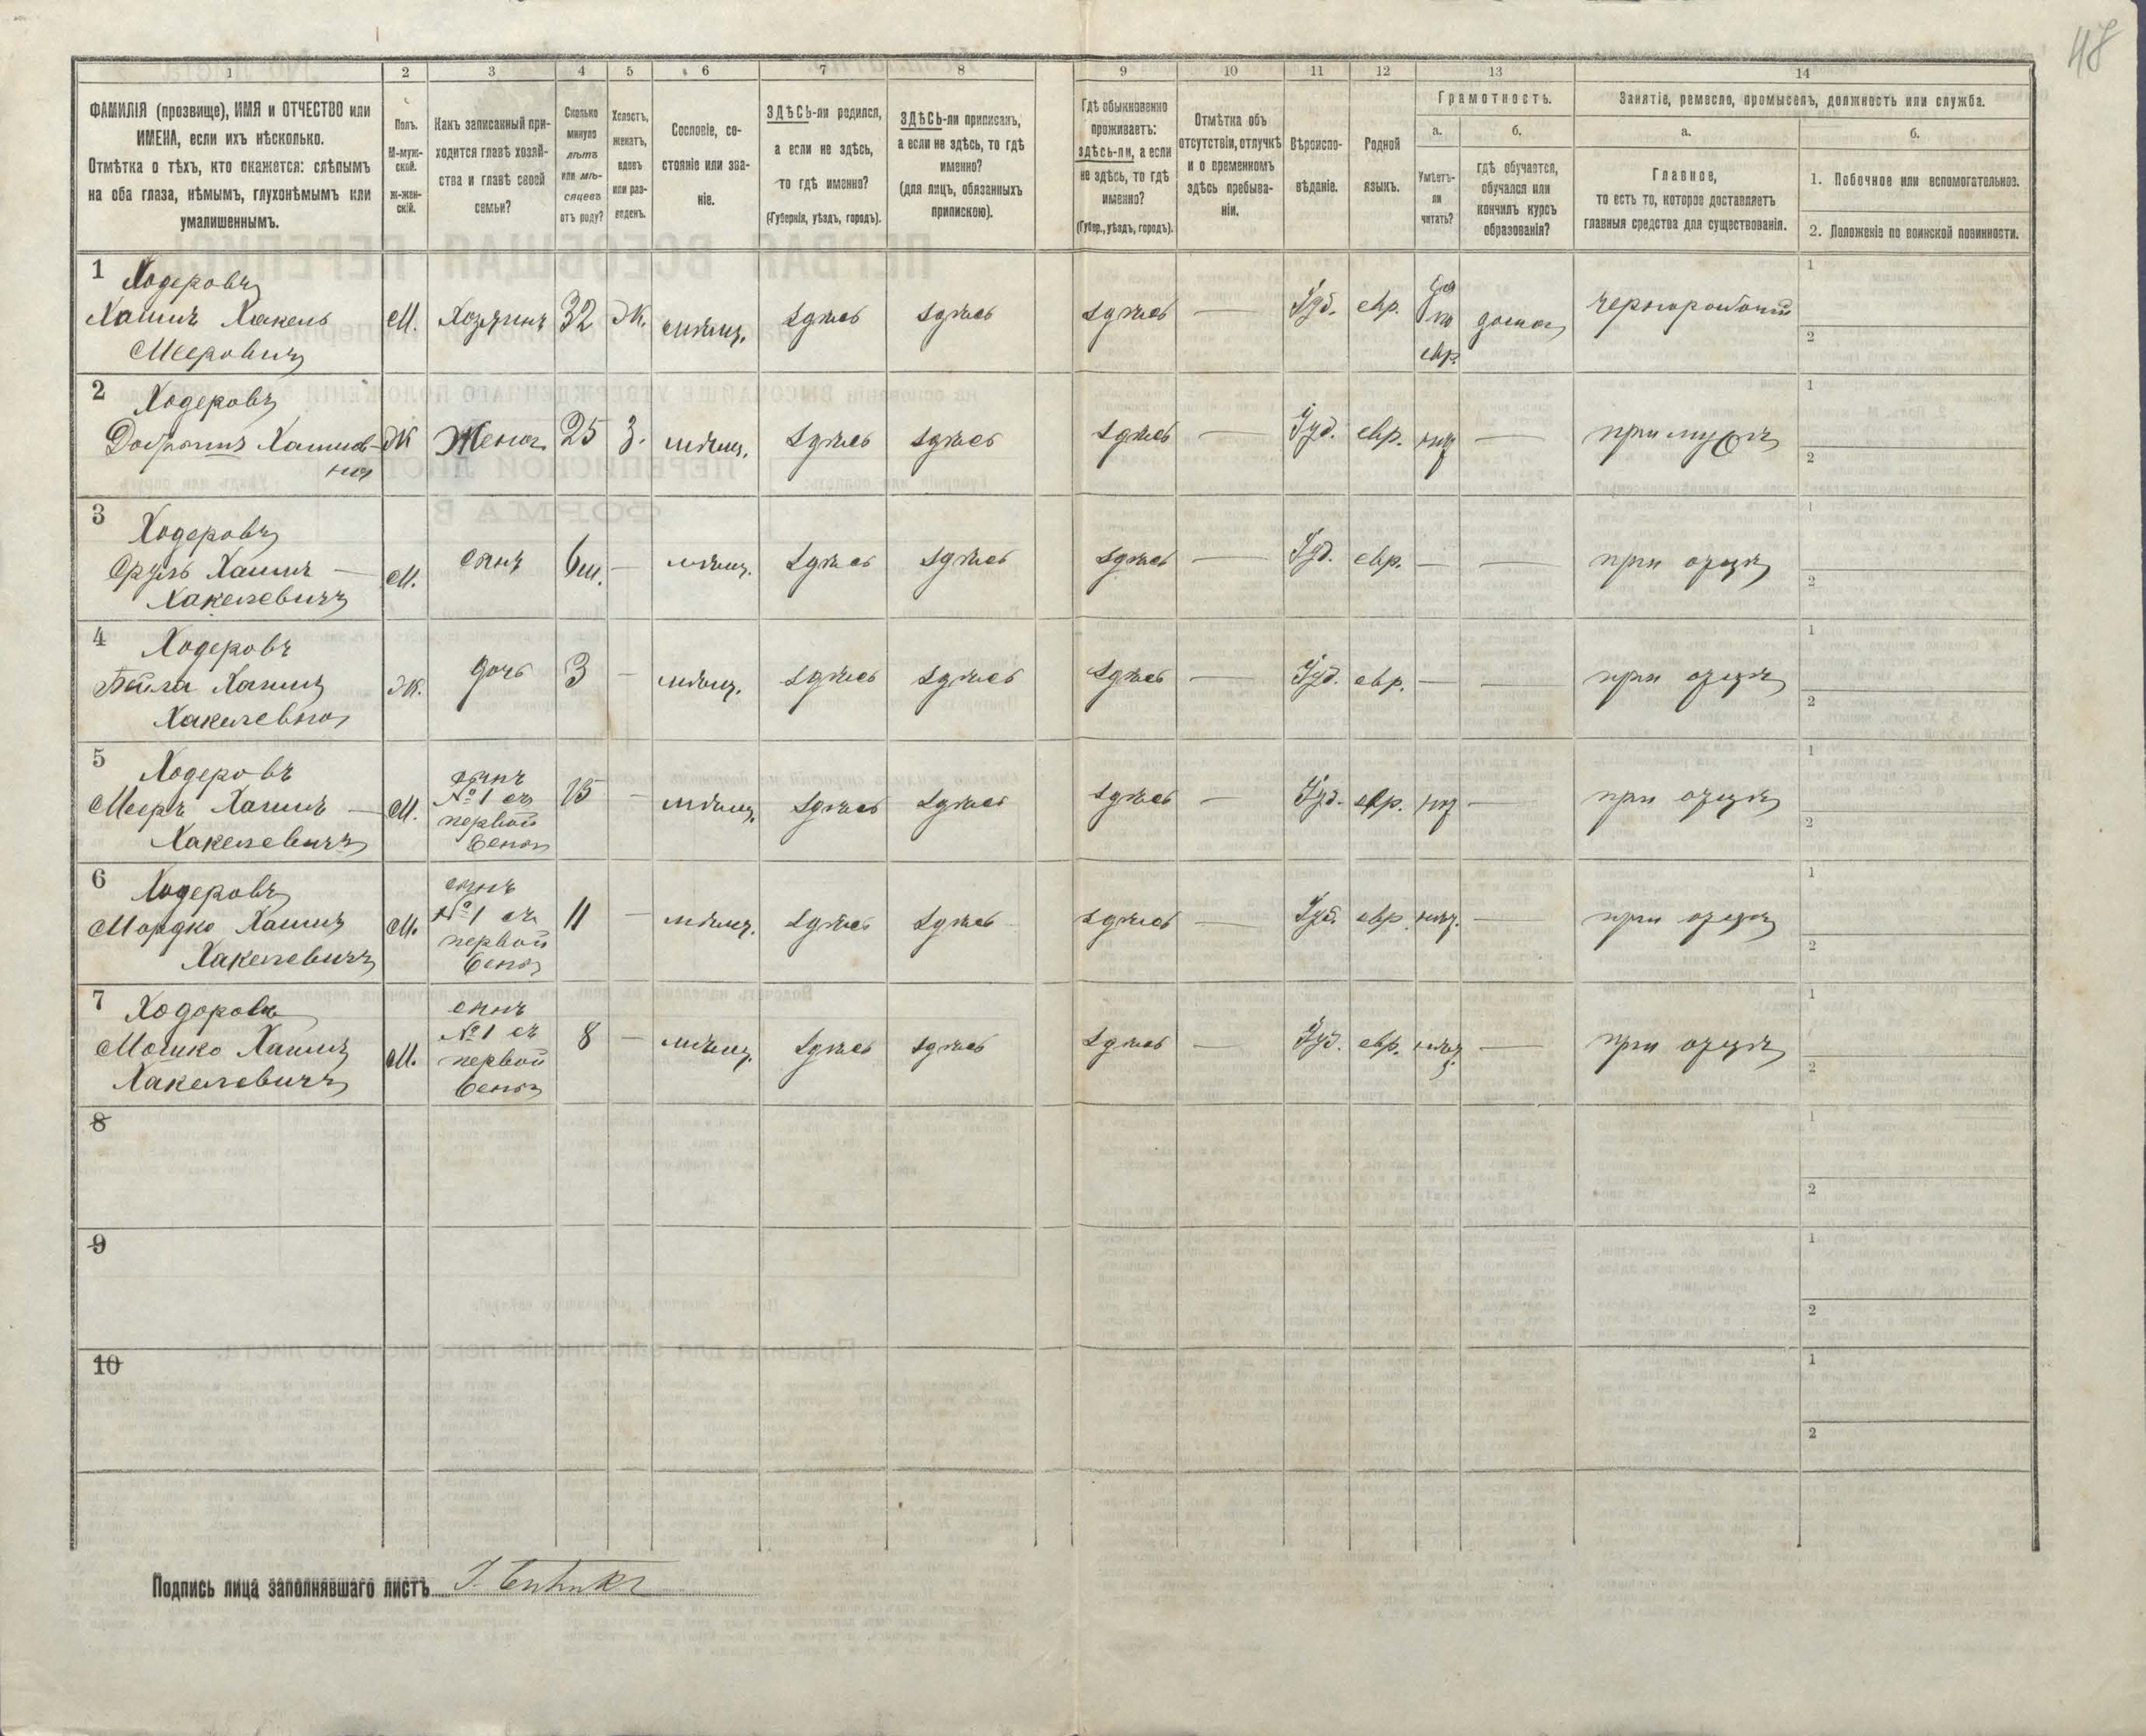 48
1
2
3
4
5
6
7
8
9
10
11
12
13
14
ФАМИЛІЯ (прозвище), ИМЯ и ОТЧЕСТВО или
ИМЕНА, если ихъ нѣсколько.
Отмѣтка о тѣхъ, кто окажется: слѣпымъ
на оба глаза, нѣмымъ, глухонѣмымъ или
умалишеннымъ.
Полъ.
М-муж-
ской.
ж-жен-
скій.
Какъ записанный при-
ходится главѣ хозяй-
ства и главѣ своей
семьи?
Сколько
минуло
лѣтъ
или мѣ-
сяцевъ
отъ роду?
Холостъ,
женатъ,
вдовъ
или раз-
веденъ.
Сословіе, со-
стояніе или зва-
ніе.
ЗДѢСЬ-ли родился,
а если не здѣсь,
то гдѣ именно?
(Губернія, уѣздъ, городъ).
ЗДѢСЬ-ли приписанъ,
а если не здѣсь, то гдѣ
именно?
(для лицъ, обязанныхъ
припискою).
Гдѣ обыкновенно
проживаетъ:
здѣсь-ли, а если
не здѣсь, то гдѣ
именно?
(Губер., уѣздъ, городъ).
Отмѣтка объ
отсутствіи, отлучкѣ
и о временномъ
здѣсь пребыва-
ніи.
Вѣроиспо-
вѣданіе.
Родной
языкъ.
Грамотность.
а.
б.
Умѣетъ-
ли
читать?
гдѣ обучается,
обучался или
кончилъ курсъ
образованія?
Занятіе, ремесло, промыселъ, должность или служба.
а.
б.
Главное,
то есть то, которое доставляетъ
главныя средства для существованія.
1. Побочное или вспомогательное.
2. Положеніе по воинской повинности.
1 Ходеровъ
Хаимъ Хакель
Мееровичъ
М. Хозяинъ 32 Ж. мѣщ. здѣсь здѣсь здѣсь — Іуд. евр. да по евр. дома чернорабочій
1
2
2 Ходеровъ
Хаимов-
на
Ж Жена 25 З. мѣщ. здѣсь здѣсь здѣсь — Іуд. евр. нѣтъ — при мужѣ
1
2
3 Ходеровъ
Сруль Хаимъ —
Хакелевичъ
М. сынъ 6 м. — мѣщ. здѣсь здѣсь здѣсь — Іуд. евр. — — при отцѣ
1
2
4 Ходеровъ
Бейла Хаимъ
Хакелевна
Ж. дочь 3 — мѣщ. здѣсь здѣсь здѣсь — Іуд. евр. — — при отцѣ
1
2
5 Ходеровъ
Мееръ Хаимъ —
Хакелевичъ
М. сынъ №1 съ первой женой 15 — мѣщ. здѣсь здѣсь здѣсь — Іуд. евр. нѣтъ — при отцѣ
1
2
6 Ходеровъ
Мордко Хаимъ
Хакелевичъ
М. сынъ №1 съ первой женой 11 — мѣщ. здѣсь здѣсь здѣсь — Іуд. евр. нѣтъ. — при отцѣ
1
2
7 Ходоровъ
Мошко Хаимъ
Хакелевичъ
М. сынъ №1 съ первой женой 8 — мѣщ. здѣсь здѣсь здѣсь — Іуд. евр. нѣтъ. — при отцѣ
1
2
8
1
2
9
1
2
10
1
2
Подпись лица заполнявшаго листъ